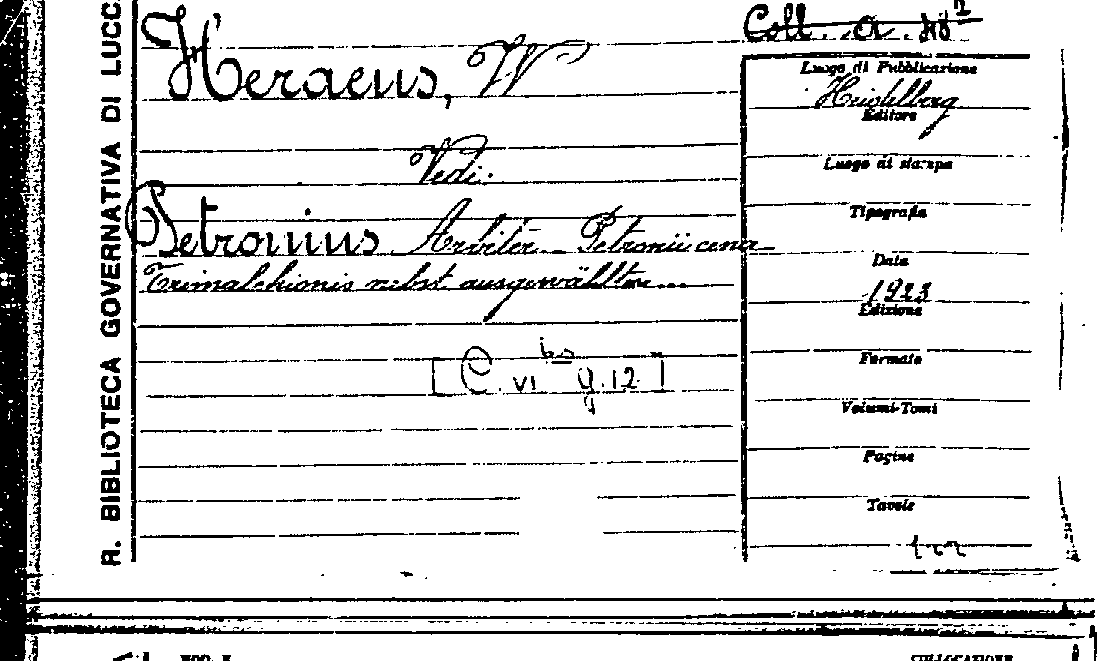 R. BIBLIOTECA GOVERNATIVA DI LUCC
Heraeus, W
Vedi:
Petronius Arbiter Petronii cena
Trimalchionis nebst ausgewählten...
[C. VI bis g. 12]
Coll. a.
Luogo di Pubblicazione
Heidelberg
Editore
Luogo di stampa
Tipografia
Data
1923
Edizione
Formato
Volumi-Tomi
Pagine
Tavole
COLLOCAZIONE